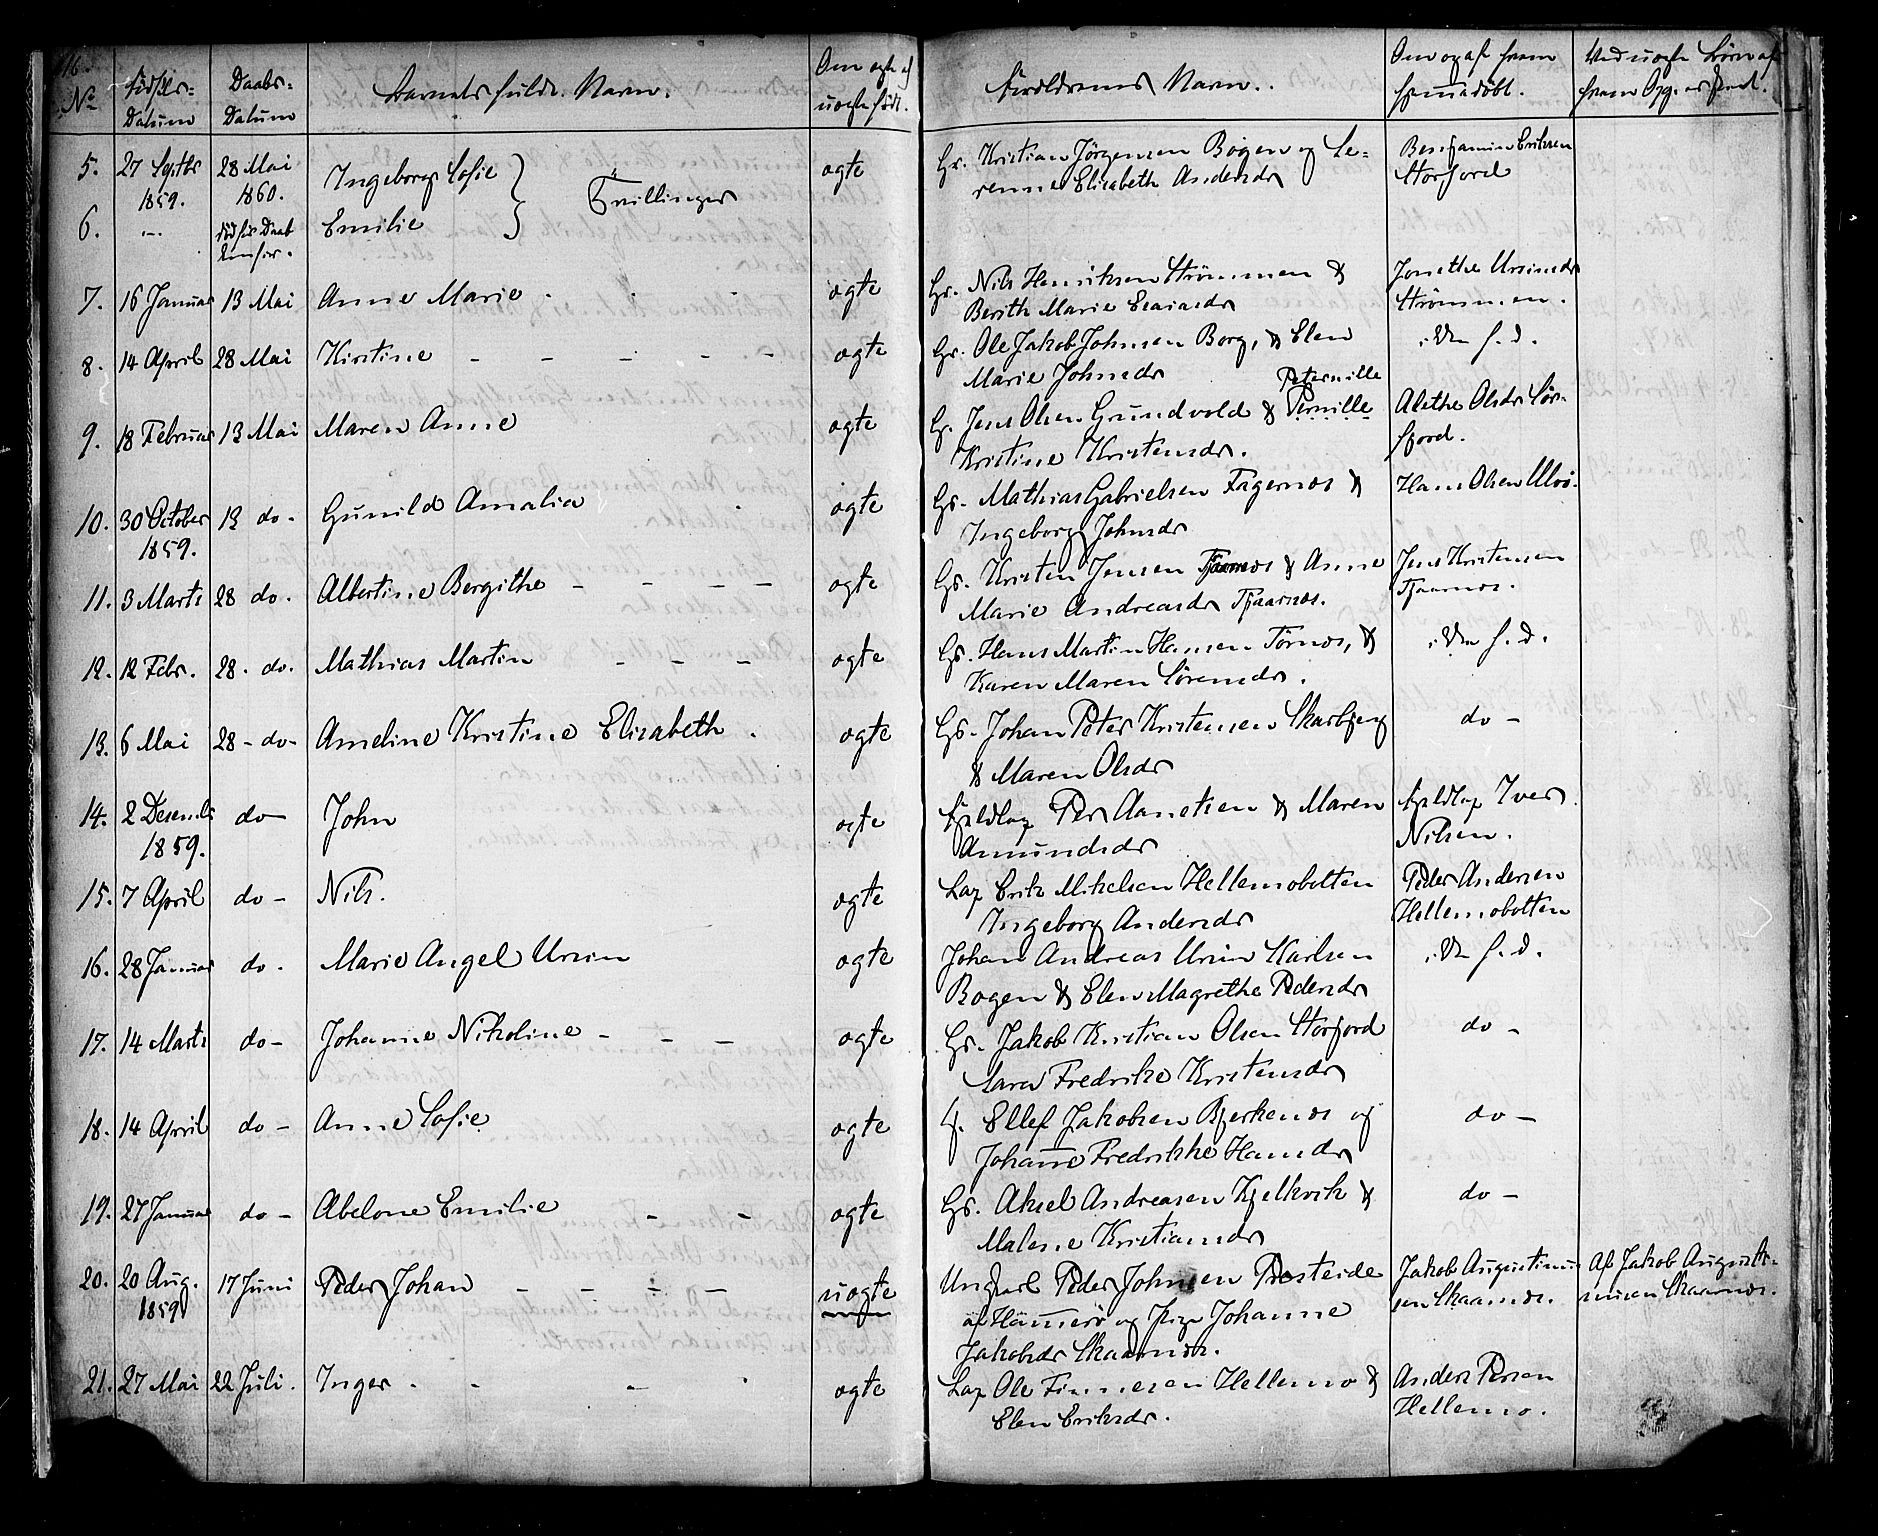 16.
No
Fødsels-
Datum
Daabs-
Datum
Barnets fulde Navn.
Om ægte el
uægte født.
Forældrenes Navn.
Om og af hvem
hjemmedøbt.
Ved uægte Børn af
hvem Opg. er skeet.
5. 27 Septbr 1859. 28 Mai 1860. Ingeborg Sofie } Tvillinger ægte Gr. Kristian Jörgensen Bogen og Se-
renne Elisabeth Andersdr Benjamin Eriksen
Storfjord
6. — død før Daab Emilie
7. 16 Januar 13 Mai Anne Marie ægte Gr. Nils Henriksen Strømmen &
Berith Marie Jonette Ursinsdr
Strømmen.
8. 14 April 28 Mai Kirstine ægte Gr. Ole Jakob Johnsen Borg, & Elen
Marie Johnsdr
9. 18 Februar 13 Mai Maren Anne ægte G. Jens Olsen Grundvold & Pernille
Peternille
Kristine Kristensdr. Alethe Olsdr Sör-
fjord.
10. 30 October 1859. 13 do. Gunild Amalia ægte Gr. Mathias Gabrielsen Fagernæs &
Ingeborg Johnsdr Hans Olsen
11. 3 Marts 28 do. Albertine Bergithe ægte Gr. Kristen Jensen Tjaarnæs & Anne
Marie Andreasdr Tjaarnæs. Jens Kristensen
Tjaarnæs.
12. 12 Febr. 28. do. Mathias Martin ægte Gr. Hans Martin Hansen Tørnæs, &
Karen Maren Sörensdr.
13. 6 Mai 28 - do - Anneline Kristine Elisabeth ægte Gr. Johan Peter Kristensen Skarbjerg do -
& Maren Olsdr
14. 2 Desemb 1859. do - John ægte Fjeldlap Per Aanetsen & Maren
Amundsdr Fjeldlap Iver
Nilsen.
15. 7 April do - Nils. ægte Lap Erik Mikelsen Hellemobotten
Ingeborg Andersdr Peder Andersen
Hellemobotten
16. 28 Januar do. Marie Angel Ursin ægte Johan Andreas Ursin Karlsen
Bogen & Elen Magrethe Pedersdr
17. 14 Marts do - Johanne Nikoline ægte Gr. Jakob Kristian Olsen Storfjord do -
Sara Fredrike Kristensdr
18. 14 April do - Anne Sofie ægte G. Ellef Jakobsen Bjerkenæs og do -
Johanne Fredrikke Hansdr
19. 27 Januar do - Abelone Emilie ægte Gr. Aksel Andreasen Kjelkvik & do -
Malene Kristiansdr
20. 20 Aug. 1859 17 Juni Peder Johan uægte Ungkarl Peder Johnsen Presteide
af Hammerø og Pige Johanne
Jakobsdr Skaarnæs. Jakob Augustinus-
sen Skaarnæs. Af Jakob Augusti-
nusen Skaarnæs.
21. 27 Mai 22 Juli. Inger ægte Lap Ole Finnesen Hellemo &
Elen Eriksdr. Anders Persen
Hellemo.